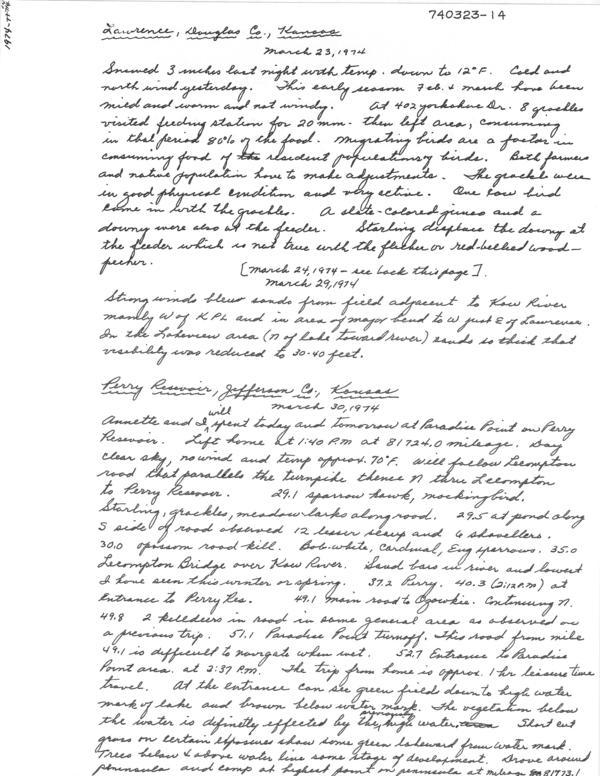 740323-14
1974
Lawrence, Douglas Co., Kansas
March 23, 1974
Snowed 3 inches last night with temp. down to 12°F. Cold and
north wind yesterday. This early season Feb. & March have been
mild and warm and not windy. At 402 Yorkshire Dr. 8 grackles
visited feeding station for 20 min. then left area, consuming
in that period 80% of the food. Migrating birds are a factor in
consuming food of the resident populations of birds. Both farmers
and native population have to make adjustments. The grackel were
in good physical condition and very active. One cow bird
come in with the grackles. A slate-colored junco and a
downy were also at the feeder. Starling displace the downy at
the feeder which is not true with the flicker or red-bellied wood-
pecker.
[March 24, 1974 - see back this page].
March 29, 1974
Strong winds blew sands from field adjacent to Kaw River
mainly W of KPL and in area of major bend to W just E of Lawrence.
In the Lakeview area (N of lake toward river) sands so thick that
visibility was reduced to 30-40 feet.
Perry Resevoir, Jefferson Co., Kansas
March 30, 1974
Annette and I will spent today and tomorrow at Paradise Point on Perry
Resevoir. Left home at 1:40 P.M at 81724.0 mileage. Day
clear sky, no wind and temp approx. 70°F. Will follow Lecompton
road that parallels the turnpike thence N thru Lecompton
to Perry Resevoir. 29.1 sparrow hawk, mockingbird.
Starling, grackles, meadow larks along road. 29.5 at pond along
S side of road observed 12 lesser scaup and 6 shovellers.
30.0 opossom road-kill. Bob-white, cardinal, Eng sparrows. 35.0
Lecompton Bridge over Kaw River. Sand bars in river and lowest
I have seen this winter or spring. 37.2 Perry. 40.3 (2:12 P.M) at
entrance to Perry Res. 49.1 main road to Ozawkie. Continuing N.
49.8 2 killdeers in road in same general area as observed on
a previous trip. 51.1 Paradise Point turnoff. This road from mile
49.1 is difficult to navigate when wet. 52.7 Entrance to Paradise
Point area at 2:37 P.M. The trip from home is approx. 1 hr leisure time
travel. At the entrance can see green field down to high water
mark of lake and brown below water mark. The vegetation below
the water is definetly effected by the previously high water. Short cut
grass on certain exposures show some green lakeward from water mark.
Trees below & above water line some stage of development. Drove around
peninsula and camp at highest point on peninsula at mileage 81773.1